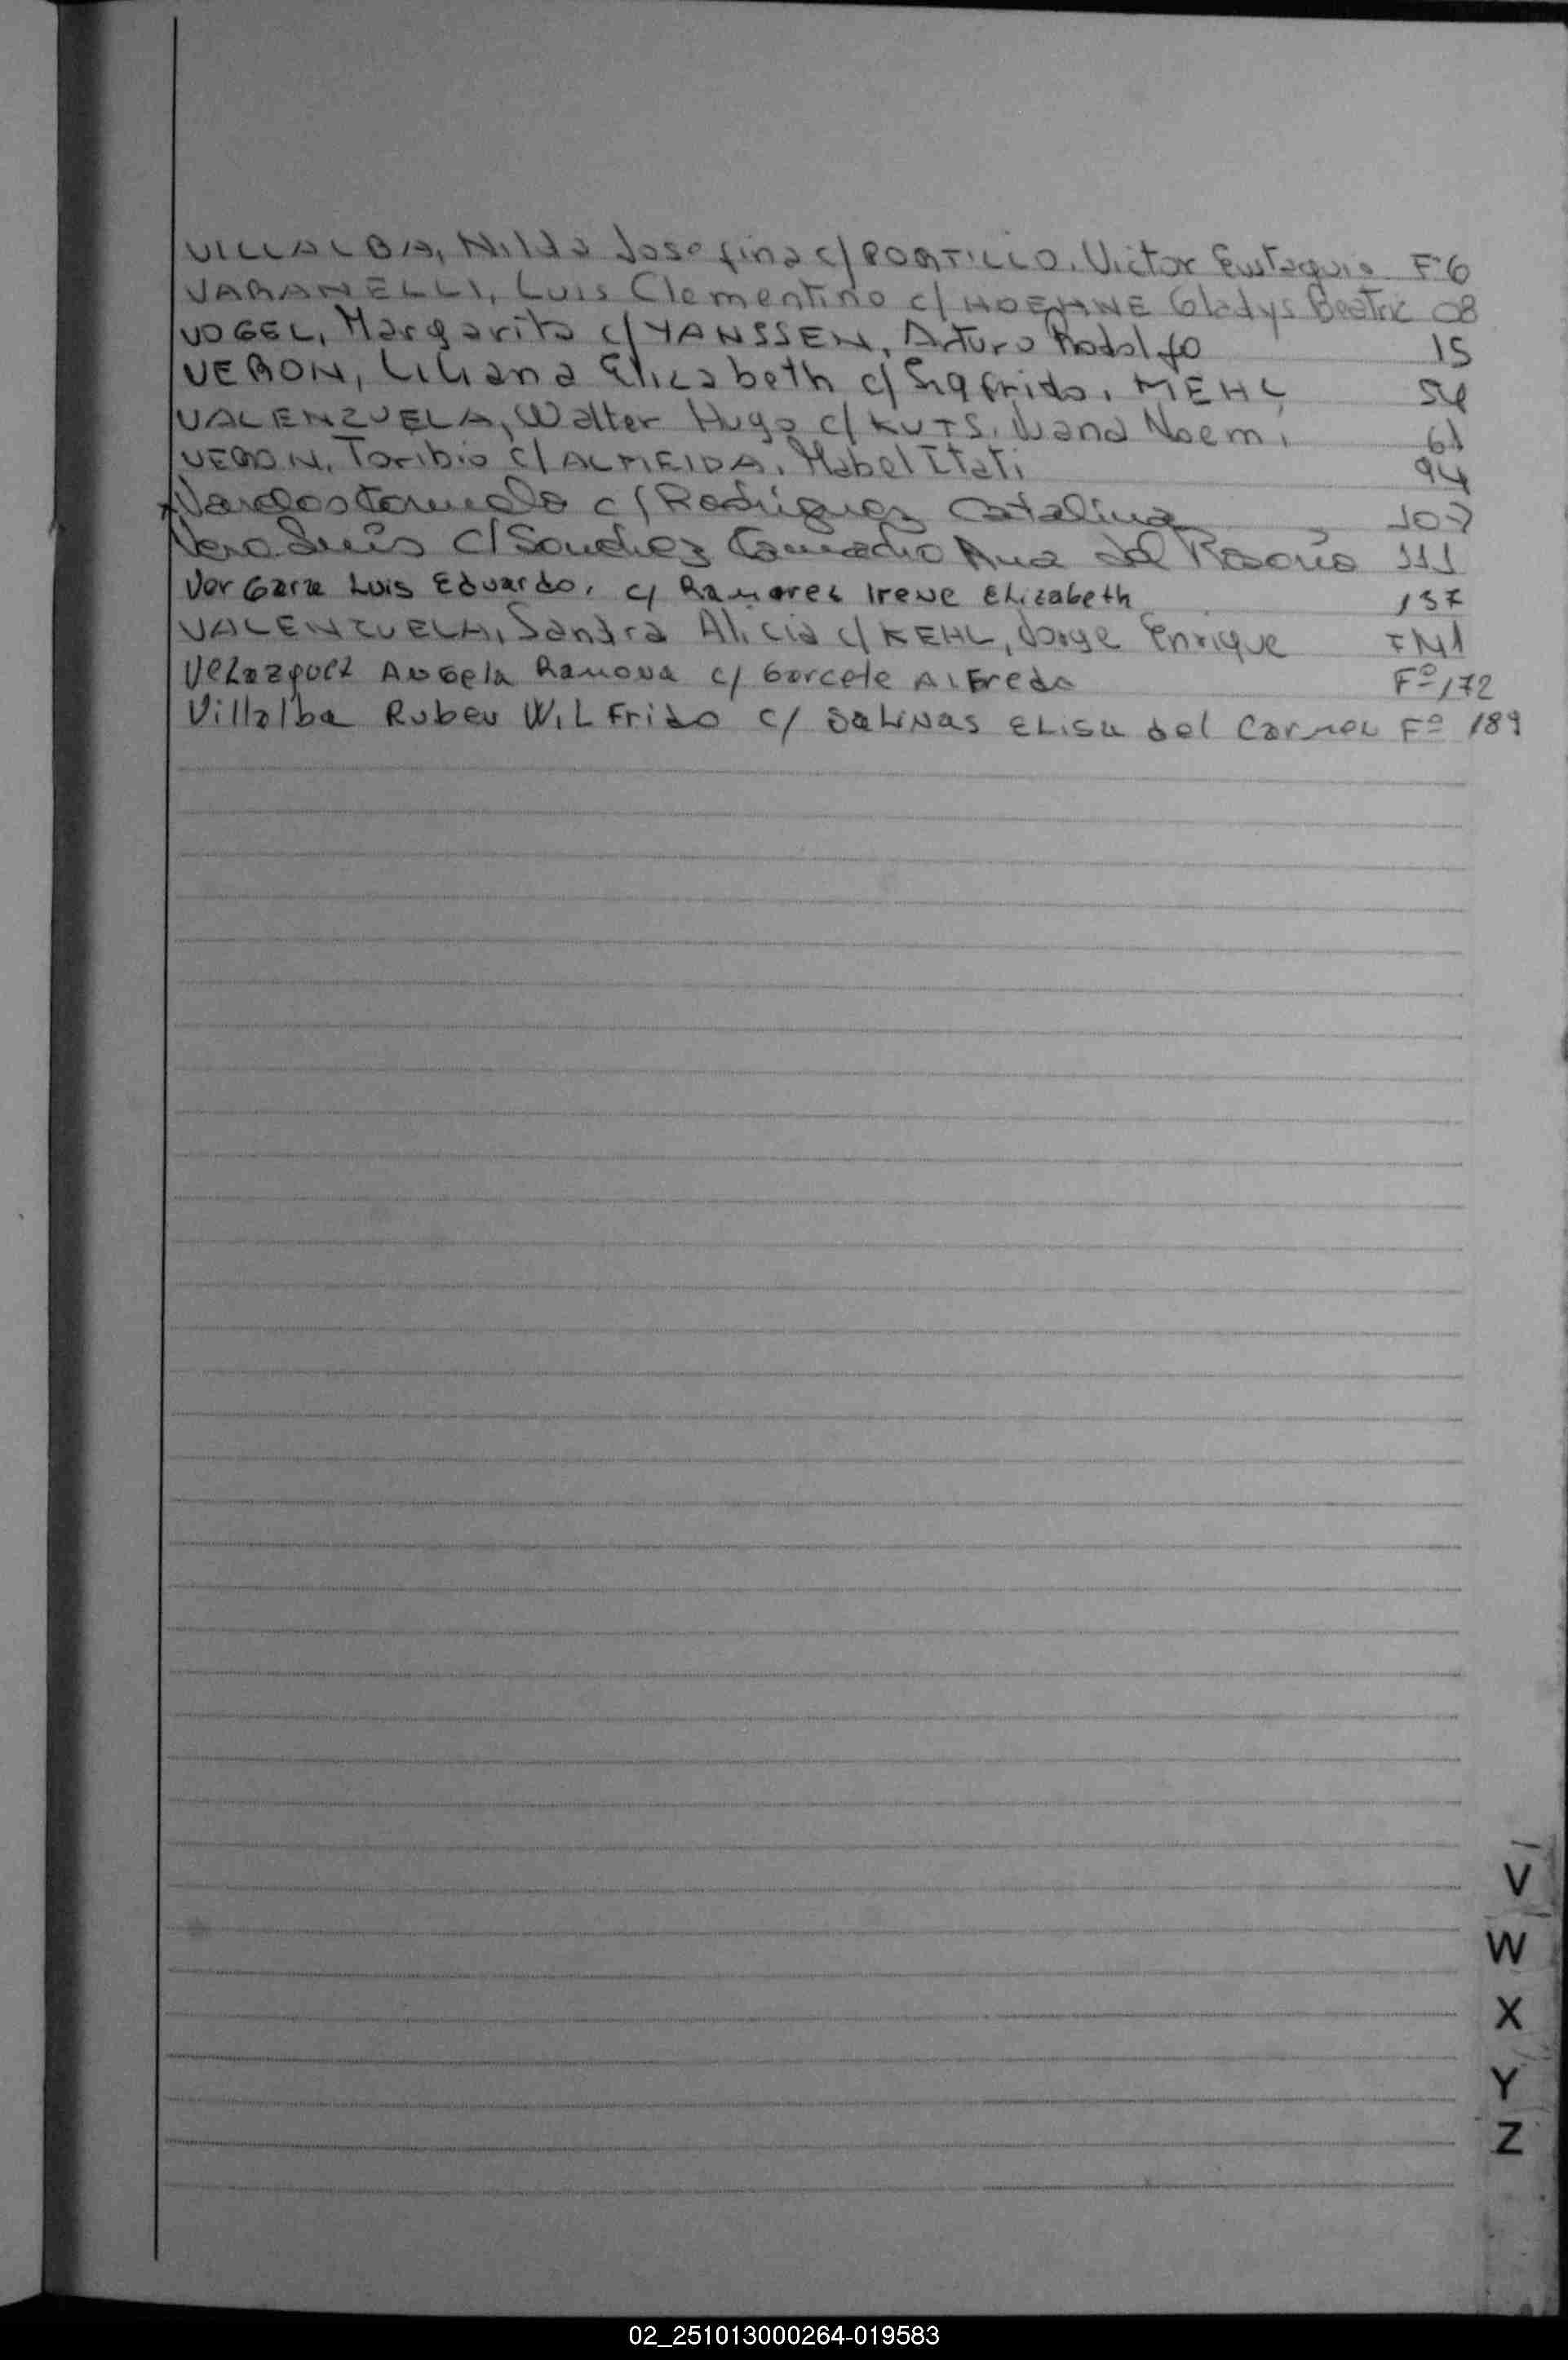 VILLALBA, Nilda Josefina c/ PORTILLO, Victor Eustaquio F°6
VARANELLI, Luis Clementino c/ HOEHNE Gladys Beatriz 08
VOGEL, Margarita c/ YANSSEN, Arturo Rodolfo 15
VERON, Liliana Elizabeth c/ Sigfrido, MEHL 54
VALENZUELA, Walter Hugo c/ KUTS, Ivana Noemi 61
VERON, Toribio c/ ALMEIDA, Mabel Itati 94
c/ Rodriguez Catalina 107
Vera Luis c/ Sanchez Ana del Rosario 111
Vergara Luis Eduardo, c/ Ramirez Irene Elizabeth 137
VALENZUELA, Sandra Alicia c/ KEHL, Jorge Enrique F141
Velazquez Angela Ramona c/ Garcete Alfredo Fº 172
Villalba Ruben Wilfrido c/ Salinas Elisa del Carmen Fº 189
V
W
X
Y
Z
02_251013000264-019583